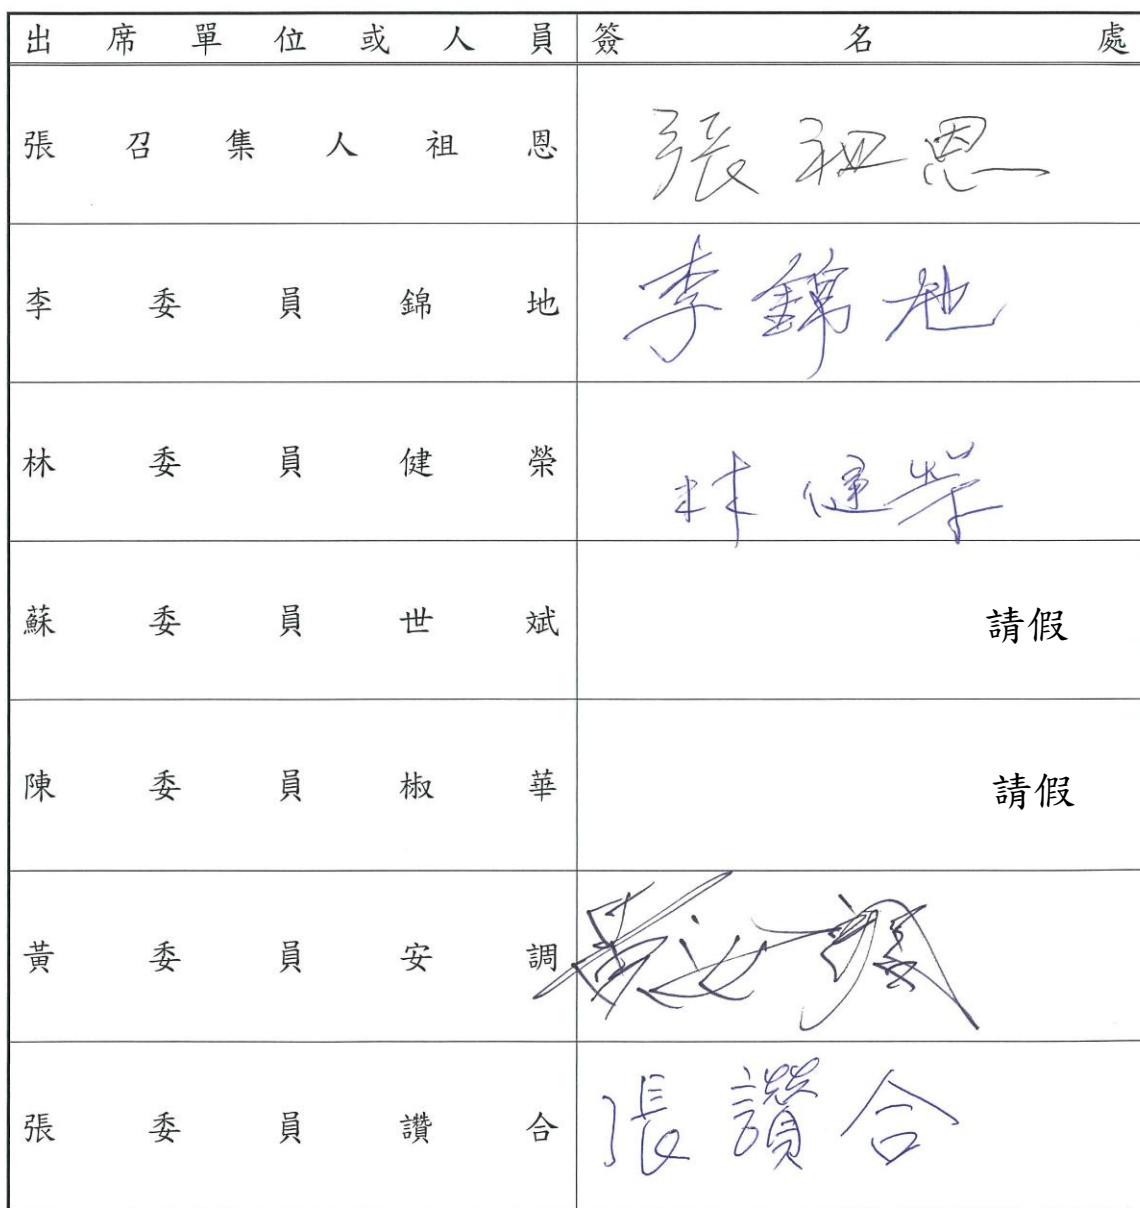 出席單位或人員 簽名處
張召集人祖恩 張祖恩
李委員錦地 李錦地
林委員健榮 林健榮
蘇委員世斌 請假
陳委員椒華 請假
黃委員安調 黃安調
張委員讚合 張讚合